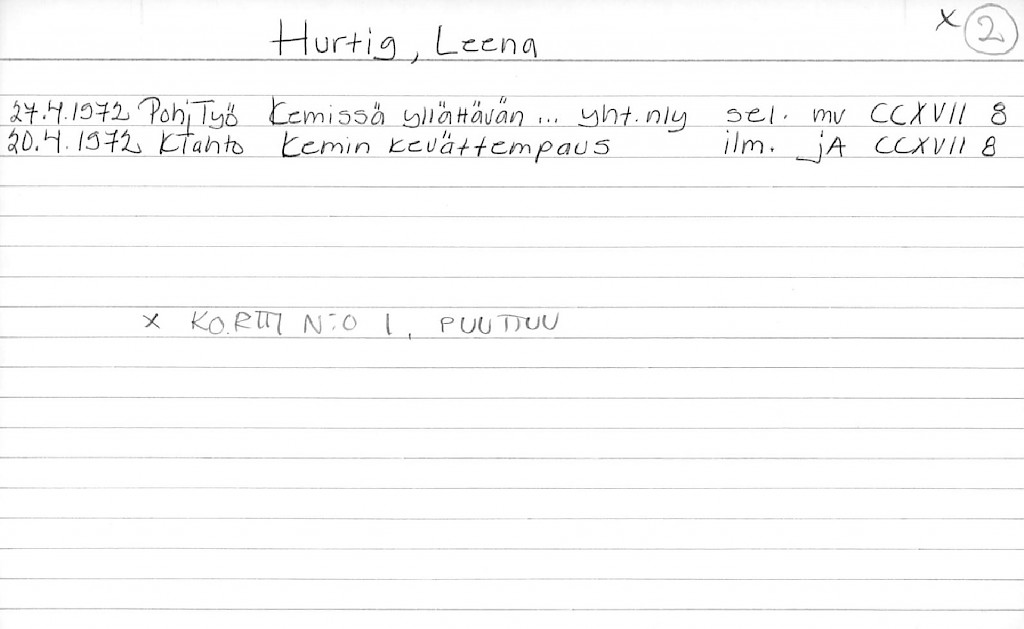 Hurtig, Leena
x 2
27.4.1972 PohjTyö Kemissä yllättävän ... yht. nly sel. mv CCXVII 8
20.4.1972 KTahto Kemin kevättempaus ilm. jA CCXVII 8
x KORTTI N:O 1, PUUTTUU